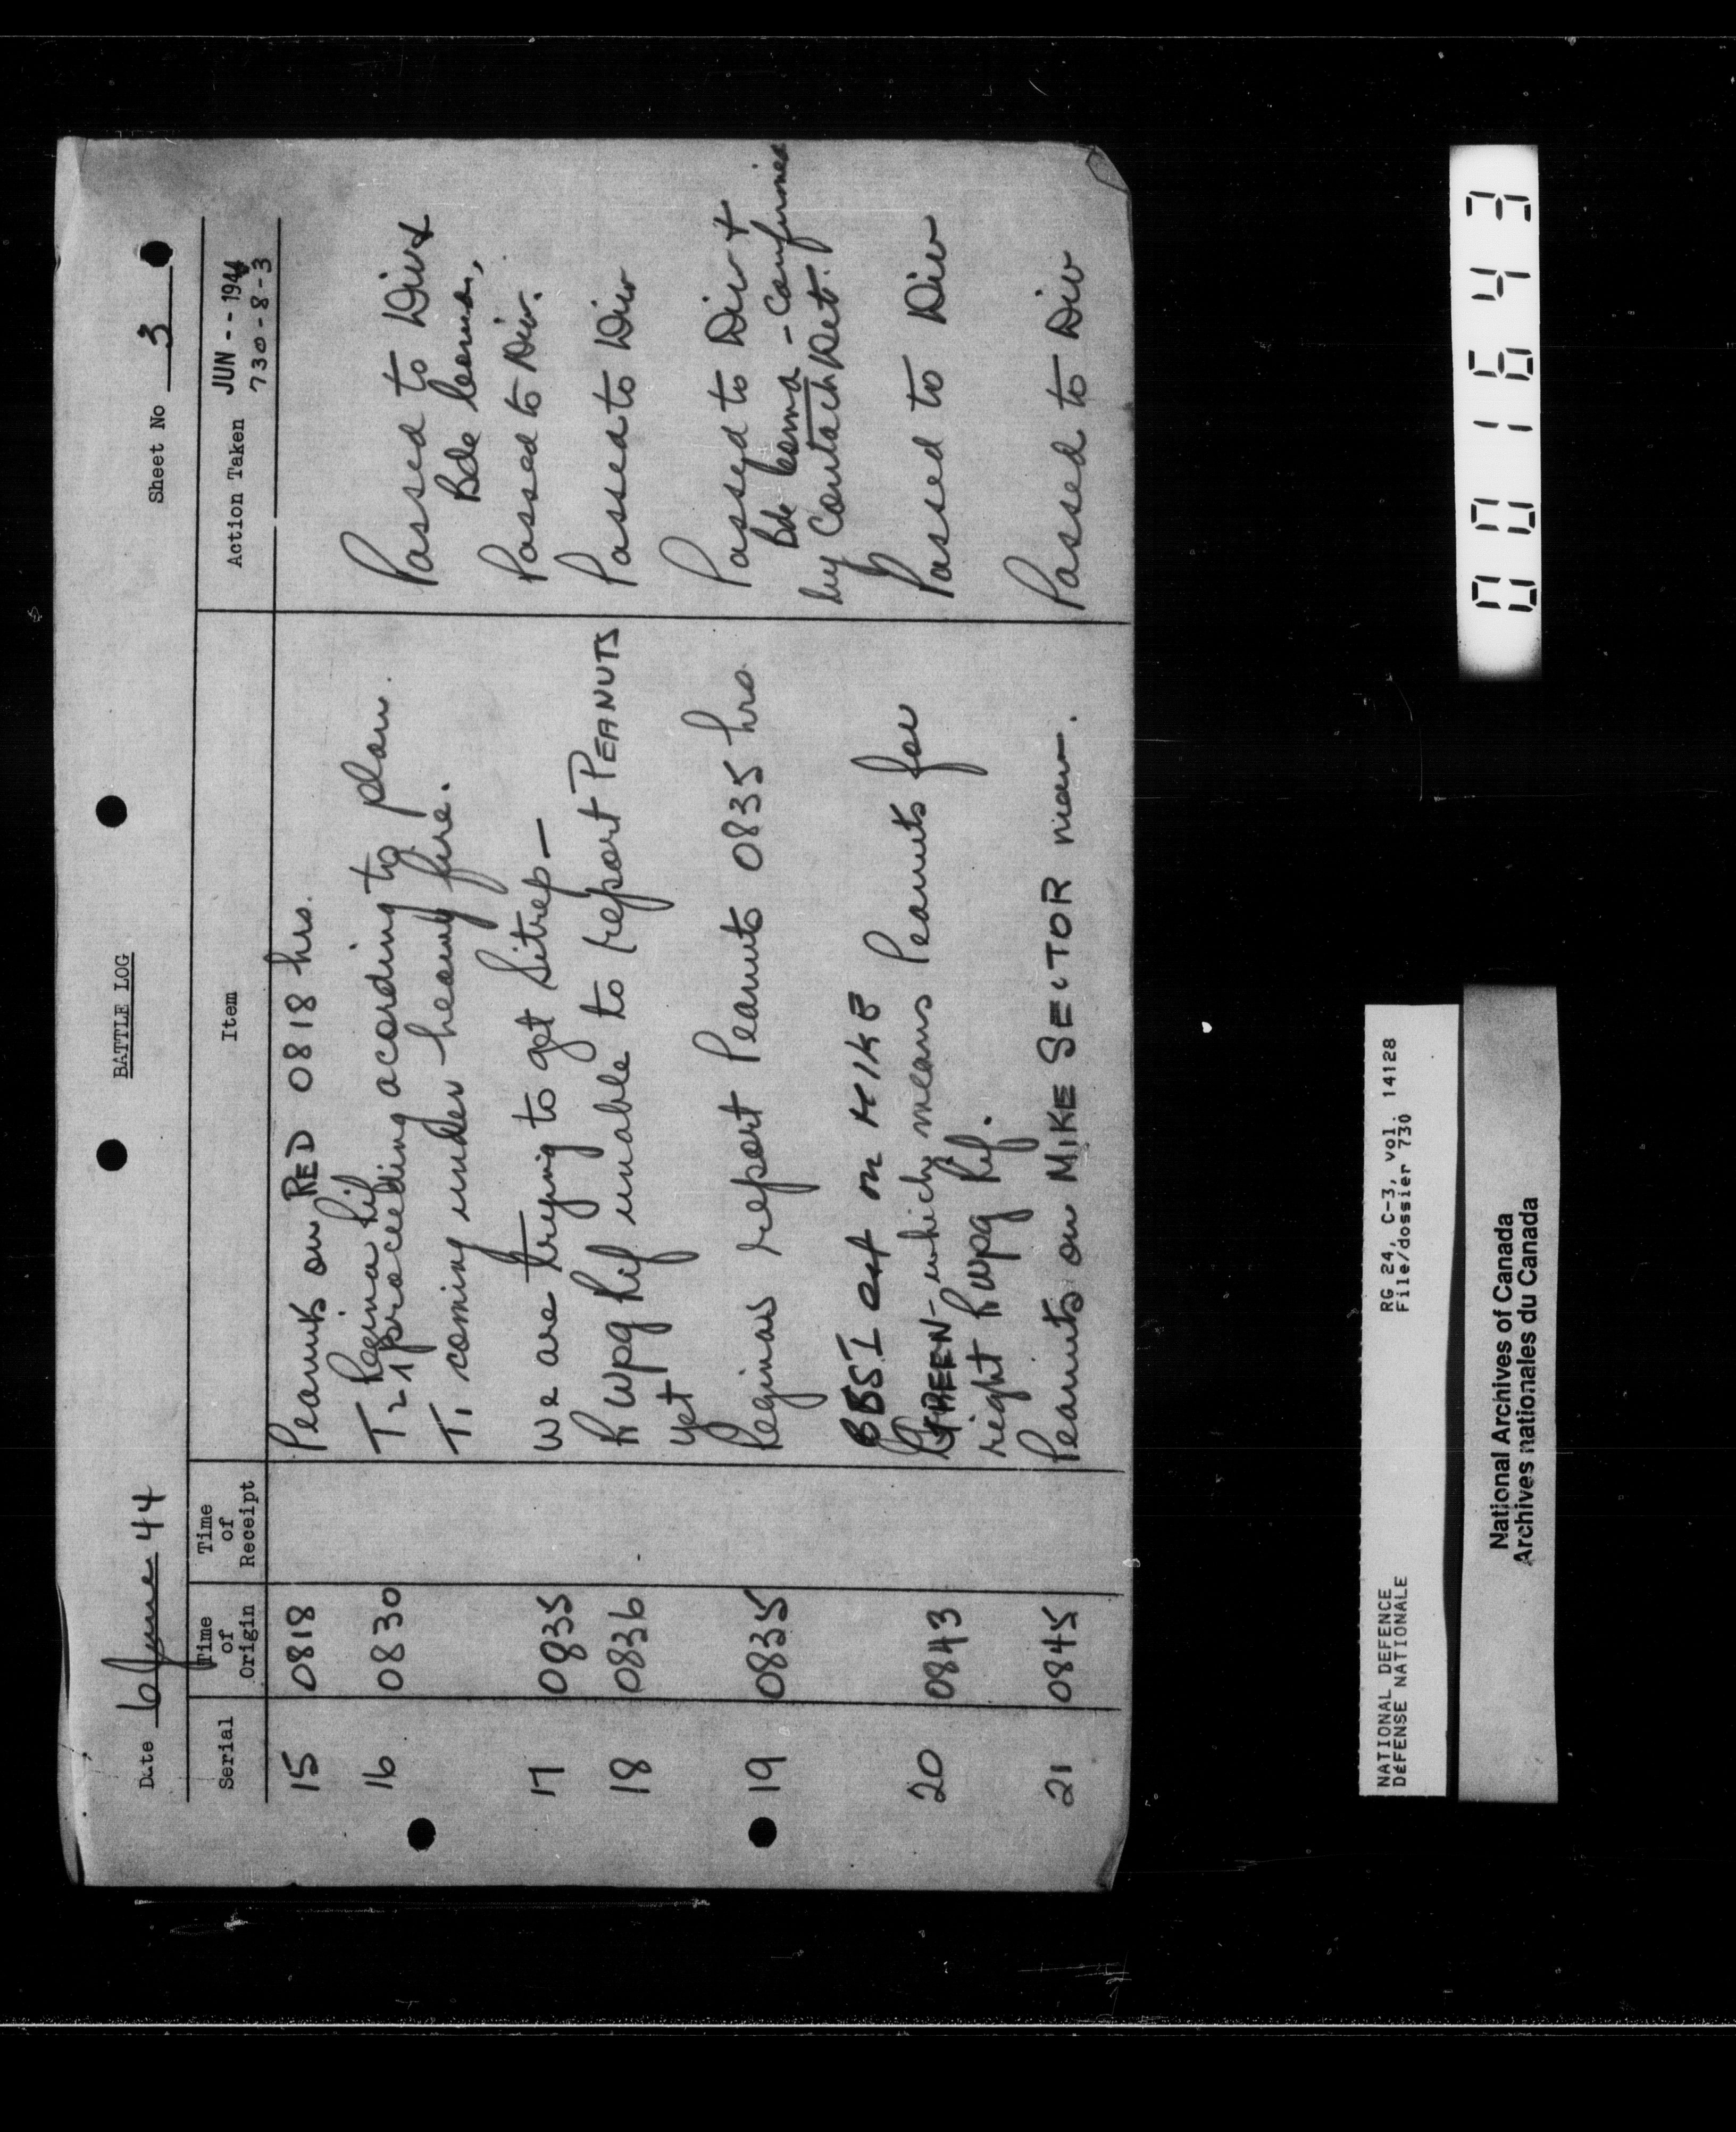 BATTLE LOG
Date 6 June 44
Sheet No 3
Serial
Time of Origin
Time of Receipt
Item
Action Taken
JUN - - 1944
730-8-3
15 0818 Peanuts on RED 0818 hrs.
16 0830 Regina Rif
T2 proceeding acording to plan. Passed to Div &
T1 coming under heavy fire. Bde
17 0835 We are trying to get Sitrep — Passed to Div.
18 0836 R Wpg Rif unable to report PEANUTS Passed to Div
yet
19 0835 Reginas report Peanuts 0835 hrs Passed to Div +
Bde - Confirmed
by Contach Det.
20 0843 BBSI est on MIKE
GREEN - which means Peanuts for Passed to Div
right R Wpg Rif.
21 0845 Peanuts on MIKE SECTOR now. Passed to Div
001643
NATIONAL DEFENCE
DÉFENSE NATIONALE
RG 24, C-3, vol. 14128
File/dossier 730
National Archives of Canada
Archives nationales du Canada